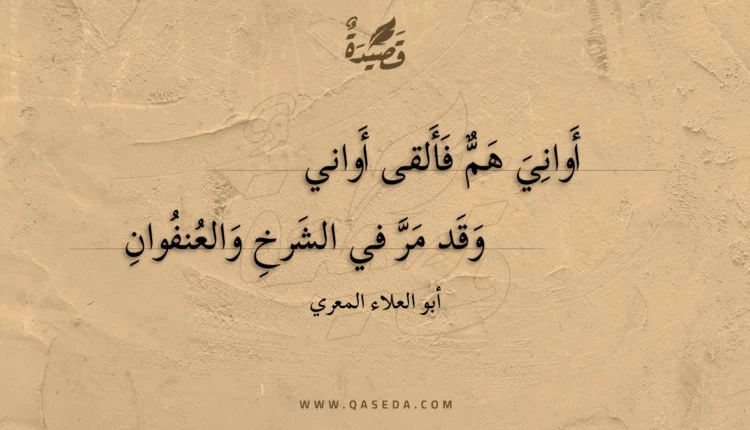 قَصِيْدَةٌ
أَوانِيَ هَمٌّ فَأَلقى أَواني
وَقَد مَرَّ في الشَرخِ وَالعُنفُوانِ
أبو العلاء المعري
WWW.QASEDA.COM